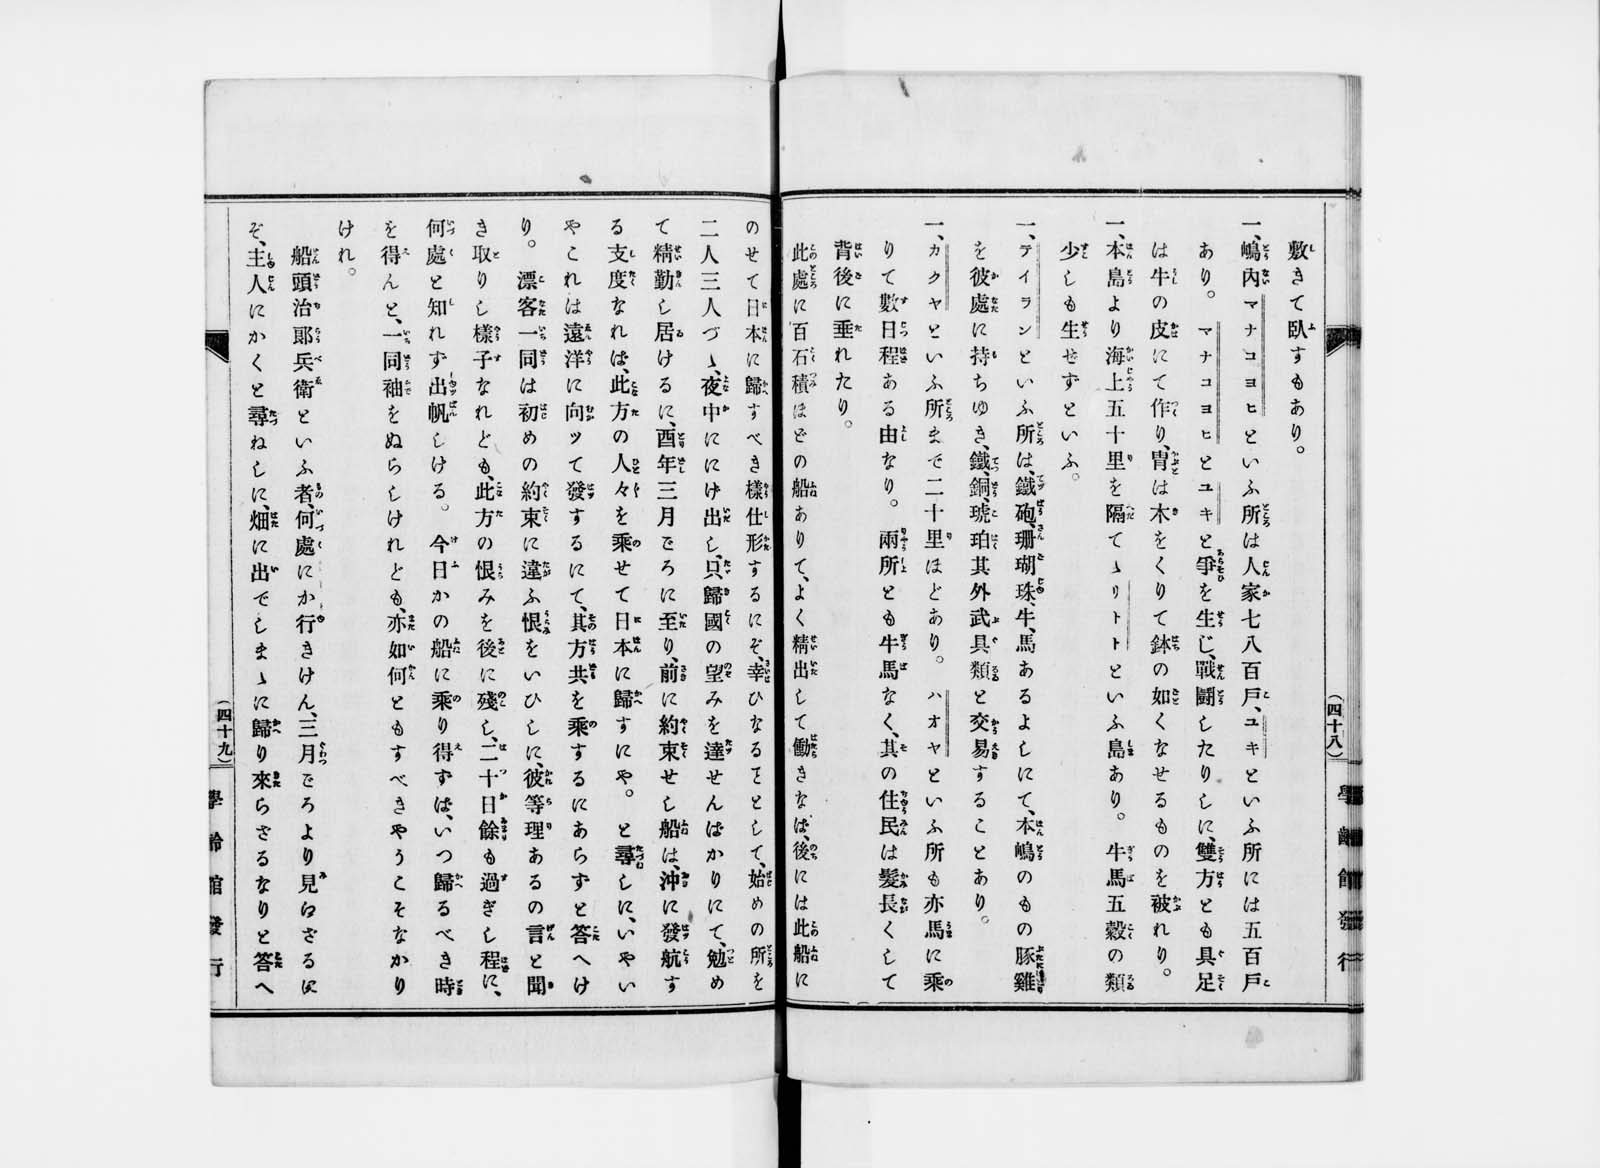 (四十八)
學齡館發行
敷きて臥すもあり。
一、嶋內マナコヨヒといふ所は人家七八百戶、ユキといふ所には五百戶
あり。マナコヨヒとユキと爭を生じ、戰鬪したりしに、雙方とも具足
は牛の皮にて作り、冑は木をくりて鉢の如くなせるものを被れり。
一、本島より海上五十里を隔てゝリトトといふ島あり。牛馬五穀の類
少しも生せずといふ。
一、テイランといふ所は、鐵砲、珊瑚珠、牛、馬あるよしにて、本嶋のもの豚雞
を彼處に持ちゆき、鐵、銅、琥珀其外武具類と交易することあり。
一、カクヤといふ所まで二十里ほどあり。ハオヤといふ所も亦馬に乘
りて數日程ある由なり。兩所とも牛馬なく、其の住民は髮長くして
背後に垂れたり。
此處に百石積ほどの船ありて、よく精出して働きなば、後には此船に
のせて日本に歸すべき樣仕形するにぞ、幸ひなることとして、始めの所を
二人三人づゝ、夜中ににげ出し、只歸國の望みを達せんばかりにて、勉め
て精勤し居けるに、酉年三月ごろに至り、前に約束せし船は、沖に發航す
る支度なれば、此方の人々を乘せて日本に歸すにや。と尋しに、いやい
やこれは遠洋に向ッて發するにて、其方共を乘するにあらずと答へけ
り。漂客一同は初めの約束に違ふ恨をいひしに、彼等理あるの言と聞
き取りし樣子なれども、此方の恨みを後に殘し、二十日餘も過ぎし程に、
何處と知れず出帆しける。今日かの船に乘り得ずば、いつ歸るべき時
を得んと、一同袖をぬらしけれども、亦如何ともすべきやうこそなかり
けれ。
船頭治郞兵衛といふ者、何處にか行きけん、三月ごろより見ゐざるほ
ぞ、主人にかくと尋ねしに、畑に出でしまゝに歸り來らざるなりと答へ
(四十九)
學齡館發行